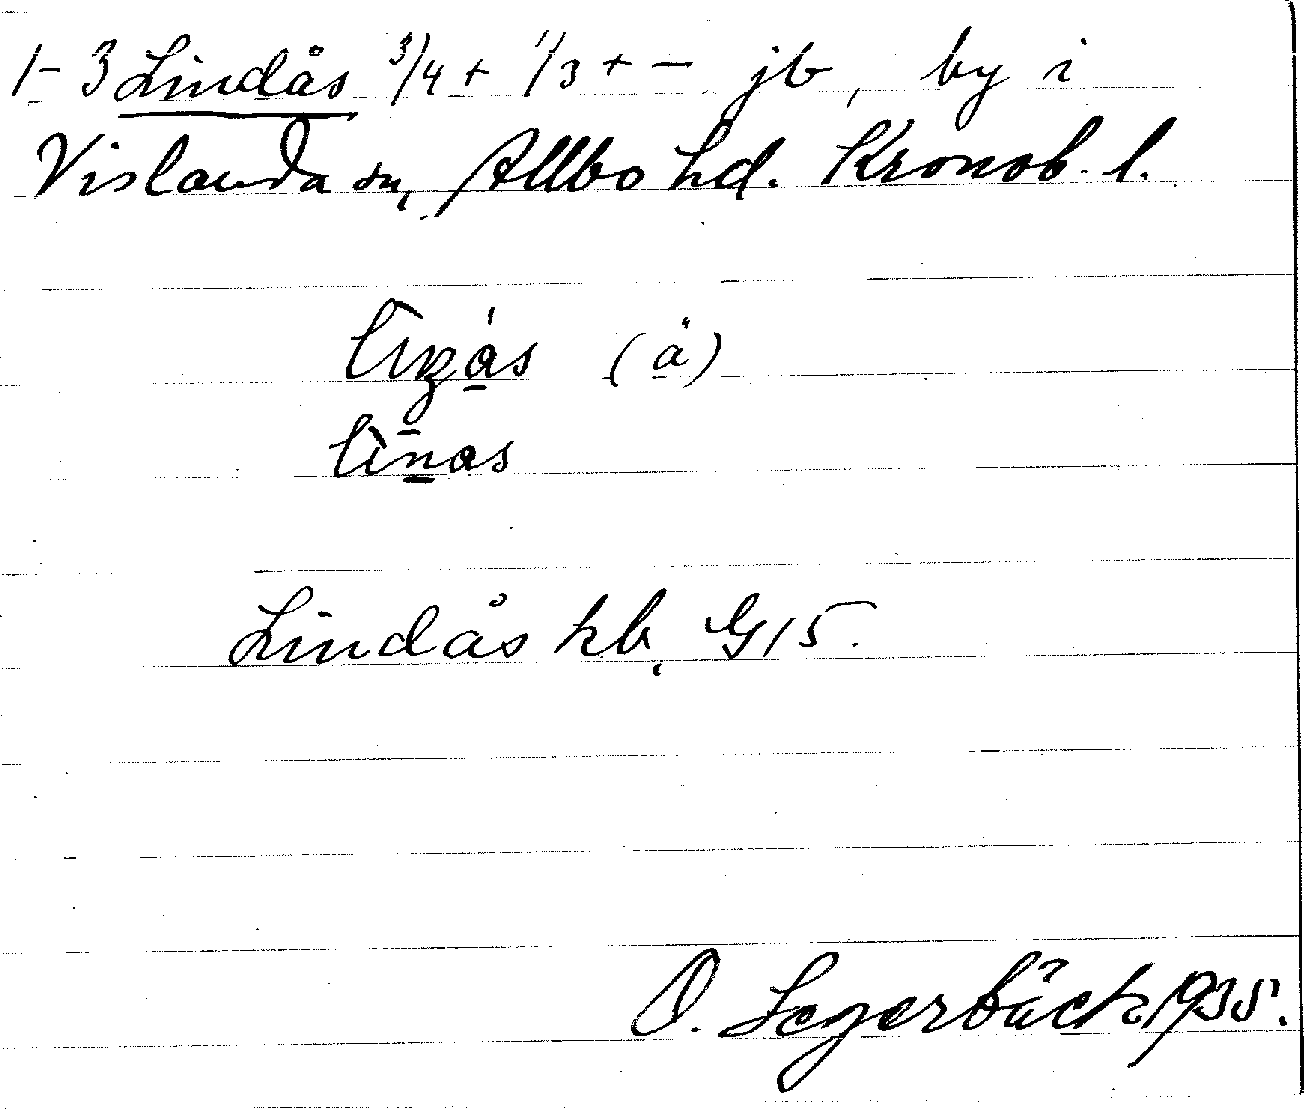 1-3 Lindås 3/4 + 1/3 + - jb, by i
Vislanda sn, Allbo hd. Kronob. l.
(å)
linas
Lindås kb, G15.
O. Lagerbäck 1935.